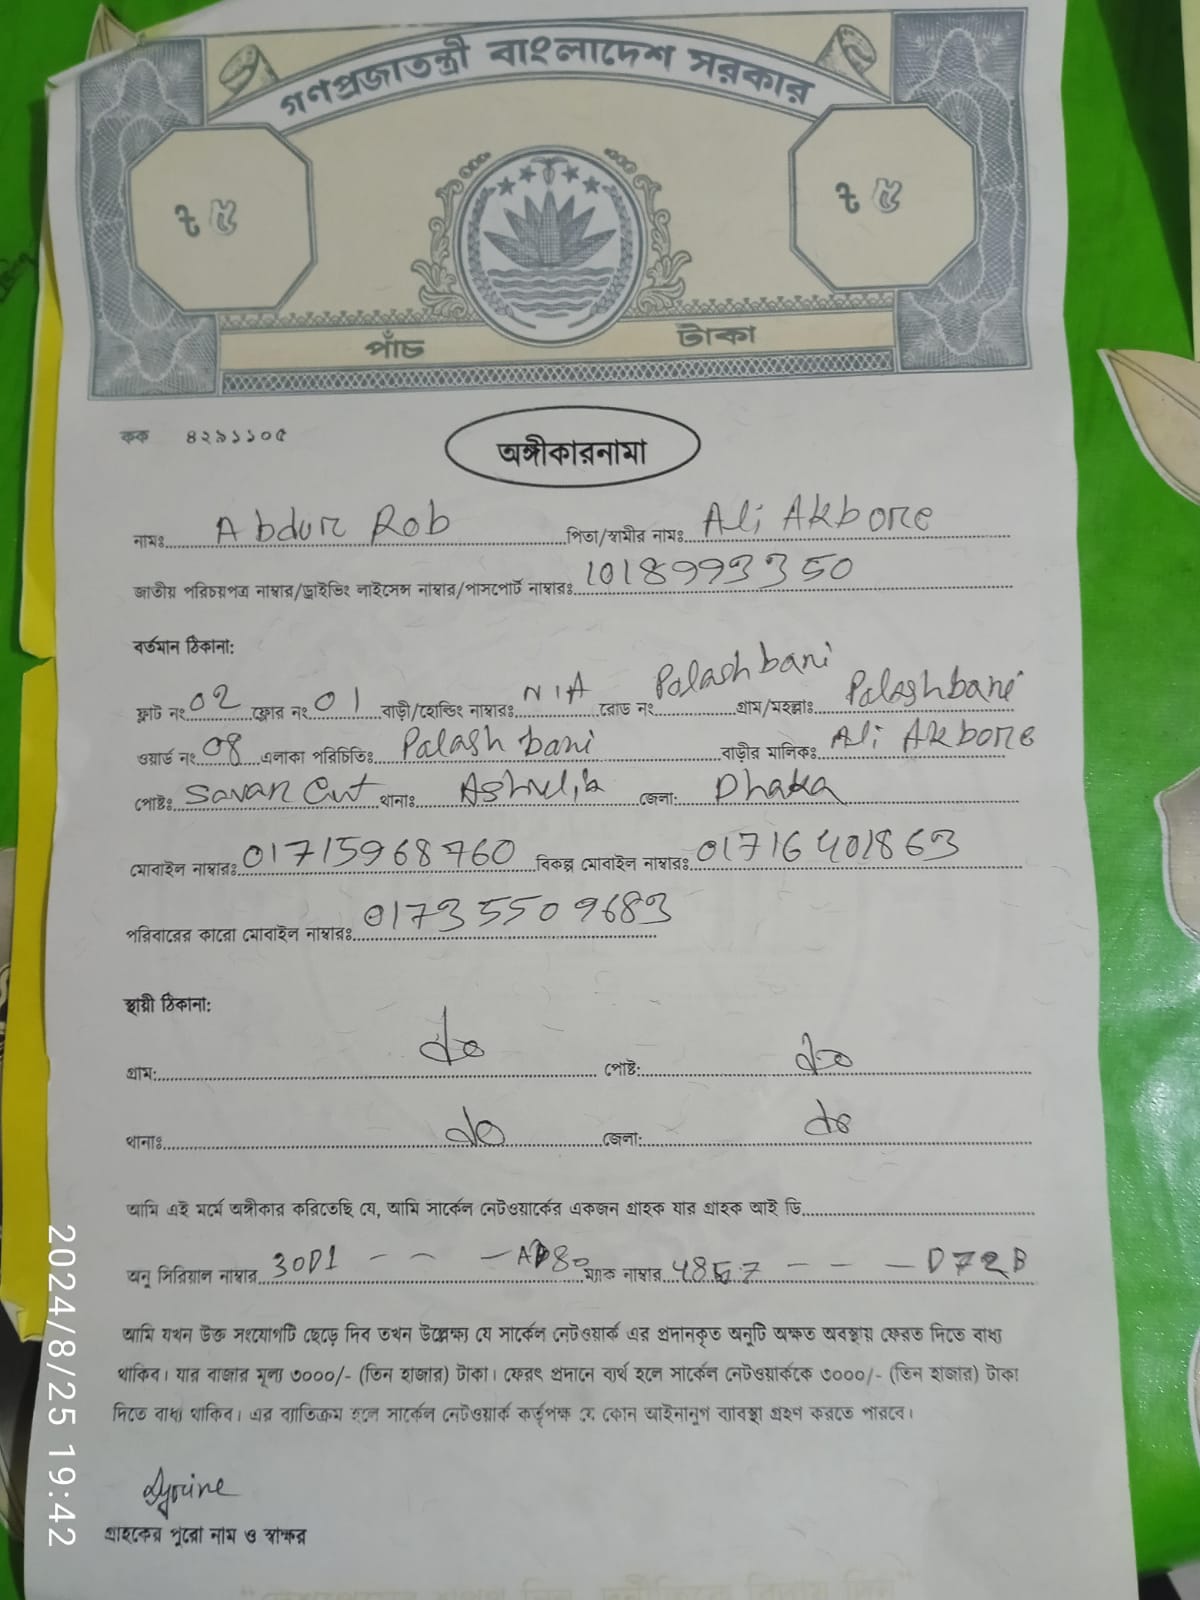 গণপ্রজাতন্ত্রী বাংলাদেশ সরকার
৳ ৫
৳ ৫
পাঁচ টাকা
কক ৪২৯১১০৫
অঙ্গীকারনামা
নামঃ Abdur Rob পিতা/স্বামীর নামঃ Ali Akbore
জাতীয় পরিচয়পত্র নাম্বার/ড্রাইভিং লাইসেন্স নাম্বার/পাসপোর্ট নাম্বারঃ 1018993350
বর্তমান ঠিকানা:
ফ্লাট নং 02 ফ্লোর নং 01 বাড়ী/হোল্ডিং নাম্বারঃ N/A রোড নং Palash bani গ্রাম/মহল্লাঃ Palashbani
ওয়ার্ড নং 08 এলাকা পরিচিতিঃ Palash bani বাড়ীর মালিকঃ Ali Akbore
পোষ্টঃ Savar Cnt থানাঃ Ashulia জেলা: Dhaka
মোবাইল নাম্বারঃ 01715968760 বিকল্প মোবাইল নাম্বারঃ 01716401863
পরিবারের কারো মোবাইল নাম্বারঃ 01735509683
স্থায়ী ঠিকানা:
গ্রাম: do পোষ্ট: do
থানাঃ do জেলা: do
আমি এই মর্মে অঙ্গীকার করিতেছি যে, আমি সার্কেল নেটওয়ার্কের একজন গ্রাহক যার গ্রাহক আই ডি
অনু সিরিয়াল নাম্বার 30D1 - - - ম্যাক নাম্বার 4857 - - - D72B
আমি যখন উক্ত সংযোগটি ছেড়ে দিব তখন উল্লেক্ষ্য যে সার্কেল নেটওয়ার্ক এর প্রদানকৃত অনুটি অক্ষত অবস্থায় ফেরত দিতে বাধ্য
থাকিব। যার বাজার মূল্য ৩০০০/- (তিন হাজার) টাকা। ফেরৎ প্রদানে ব্যর্থ হলে সার্কেল নেটওয়ার্ককে ৩০০০/- (তিন হাজার) টাকা
দিতে বাধ্য থাকিব। এর ব্যাতিক্রম হলে সার্কেল নেটওয়ার্ক কর্তৃপক্ষ যে কোন আইনানুগ ব্যাবস্থা গ্রহণ করতে পারবে।
গ্রাহকের পুরো নাম ও স্বাক্ষর
2024/8/25 19:42